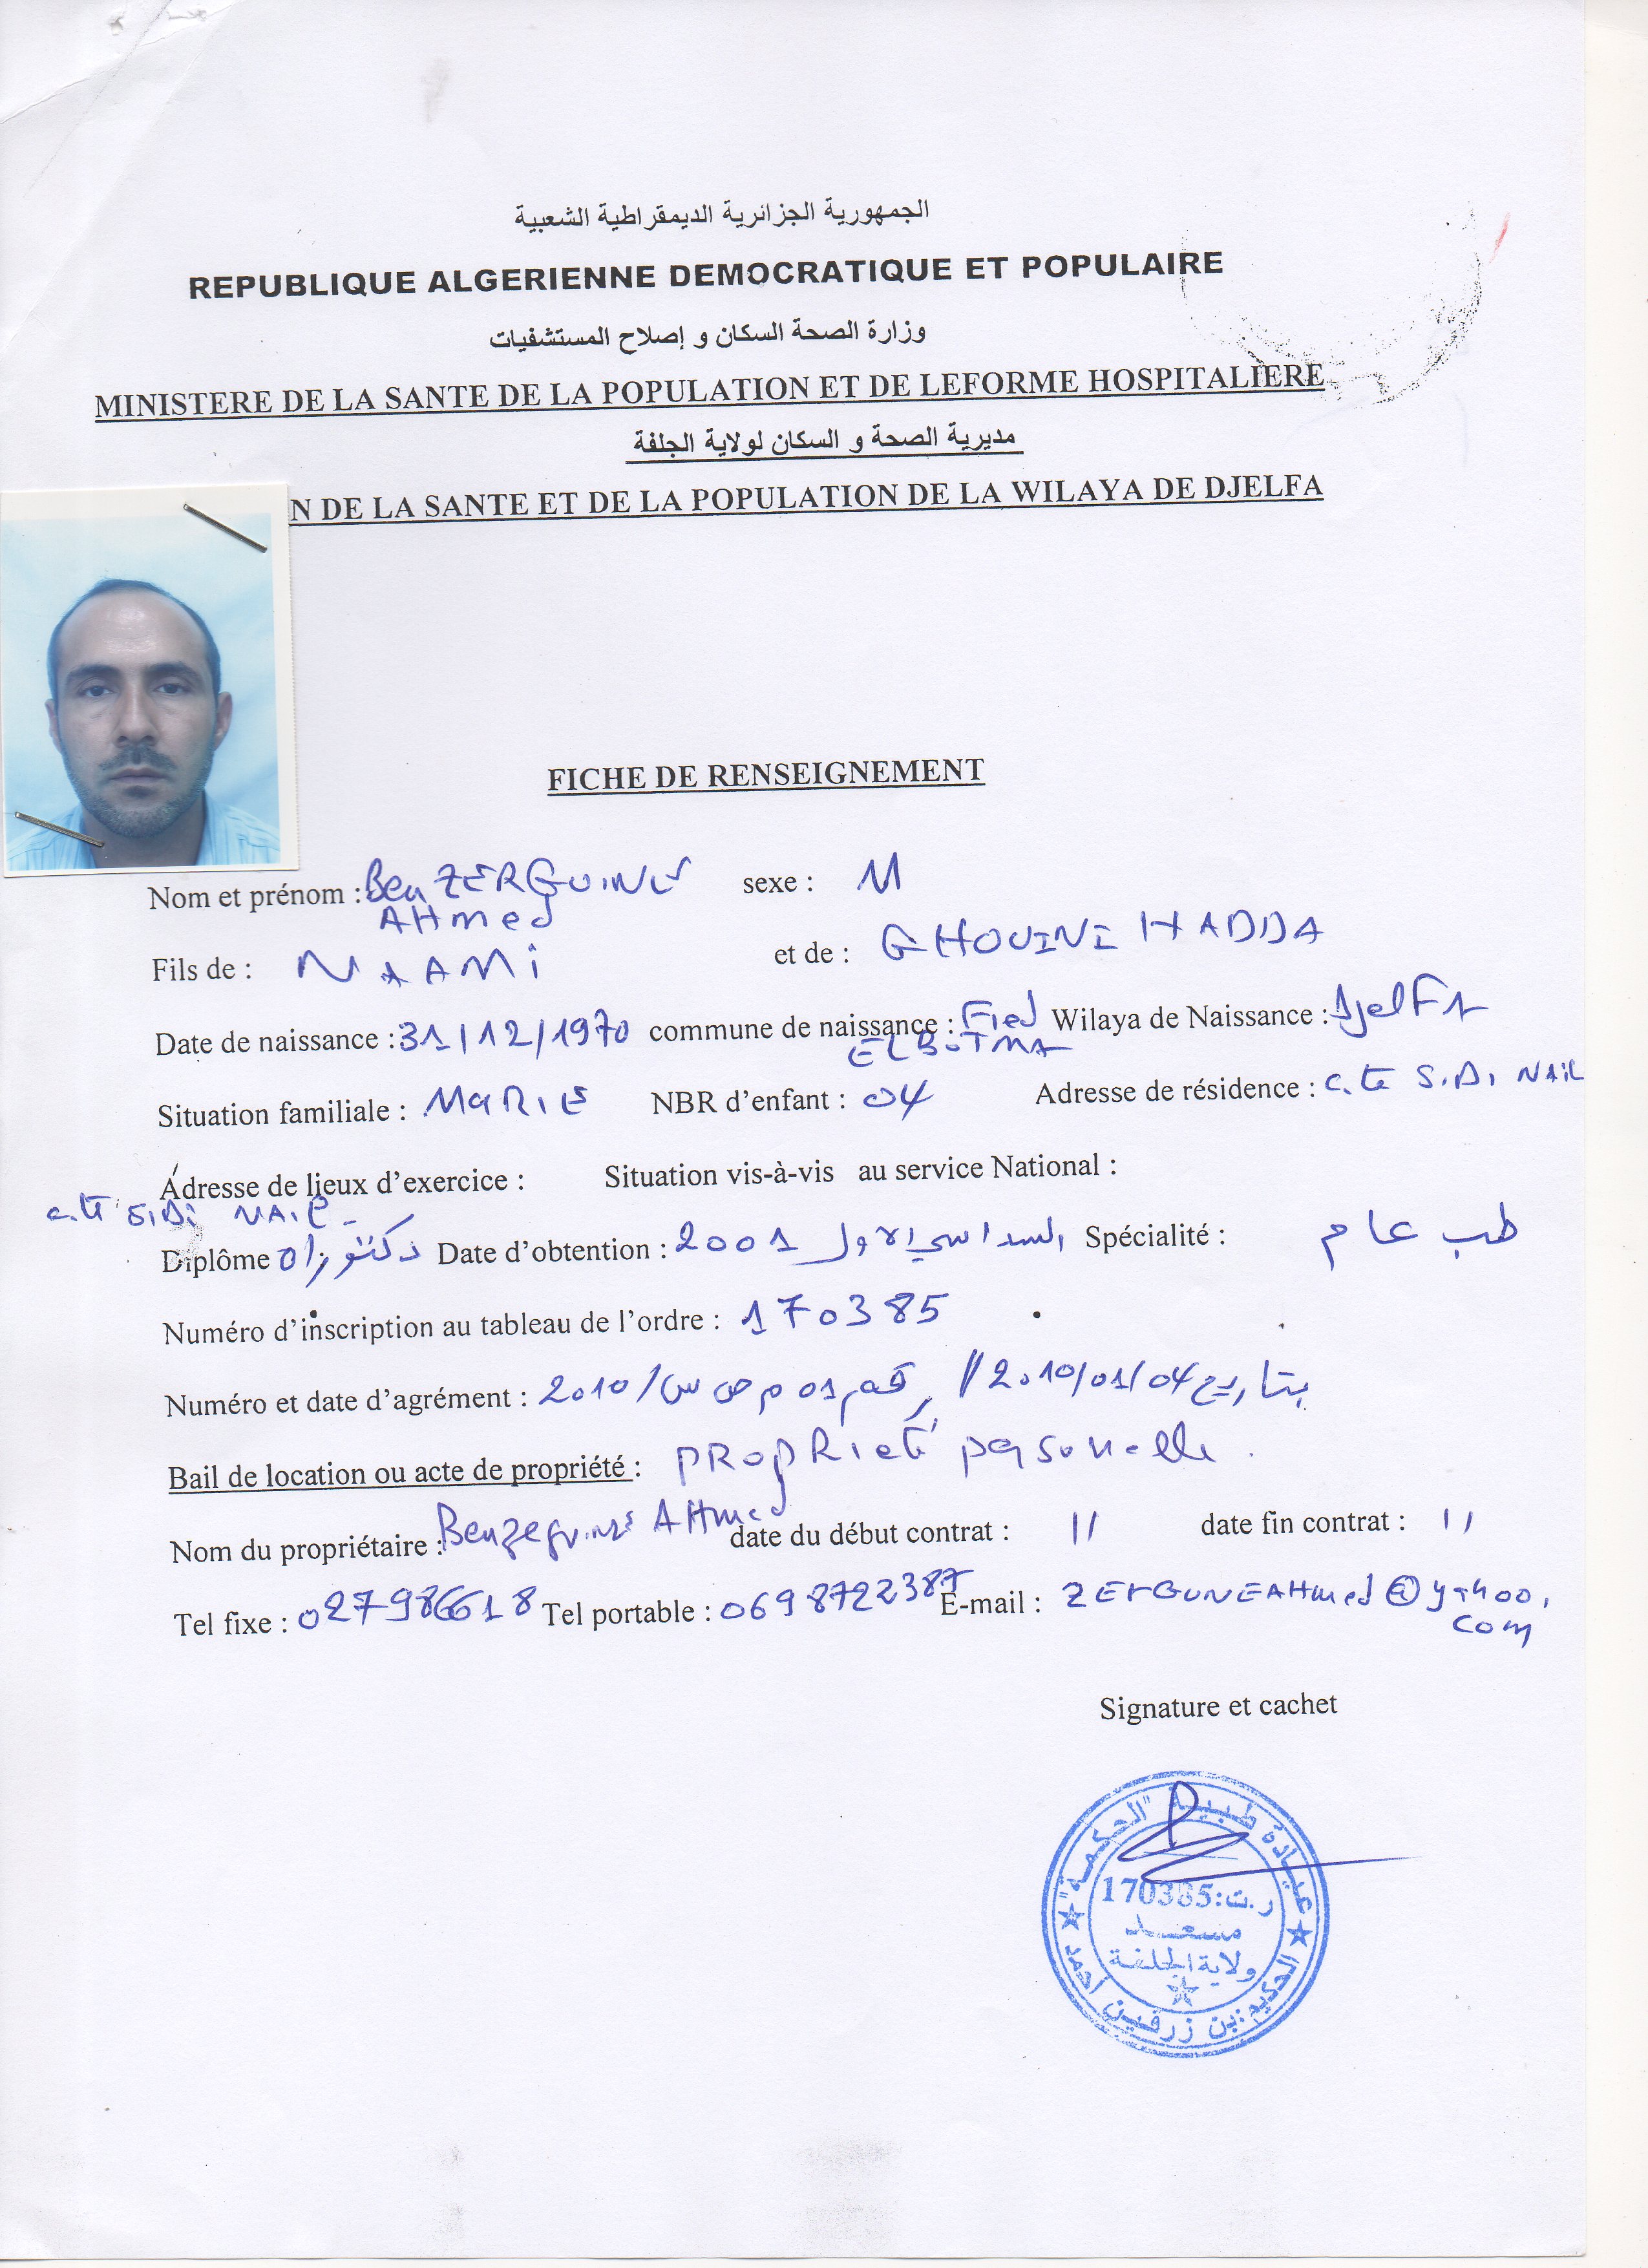 الجمهورية الجزائرية الديمقراطية الشعبية
REPUBLIQUE ALGERIENNE DEMOCRATIQUE ET POPULAIRE
وزارة الصحة السكان و إصلاح المستشفيات
MINISTERE DE LA SANTE DE LA POPULATION ET DE LEFORME HOSPITALIERE
مديرية الصحة و السكان لولاية الجلفة
N DE LA SANTE ET DE LA POPULATION DE LA WILAYA DE DJELFA
FICHE DE RENSEIGNEMENT
Nom et prénom : Ben ZERGUINE sexe : M
AHmed
Fils de : NAAMi et de : GHOUINI HADDA
Date de naissance : 31/12/1970 commune de naissance : Fied Wilaya de Naissance : DjelFA
ELBOTMA
Situation familiale : MARIE NBR d’enfant : 04 Adresse de résidence : cité SiDi NAIL
Adresse de lieux d’exercice : Situation vis-à-vis au service National :
cité SiDi NAIL
Diplôme دكتوراه Date d’obtention : السداسي الاول 2001 Spécialité : طب عام
Numéro d’inscription au tableau de l’ordre : 170385
Numéro et date d’agrément : رقم 01 م ص س/2010 // بتاريخ 2010/01/04
Bail de location ou acte de propriété : PROpRieté personelle.
Nom du propriétaire : Benzeguine AHmed date du début contrat : // date fin contrat : //
Tel fixe : 027986618 Tel portable : 0698722387 E-mail : ZErGUNEAHmed@yahoo.
com
Signature et cachet
عيادة طبية "الحكمة"
ر.ت:170385
مسعد
ولاية الجلفة
الحكيم:بن زرقين أحمد